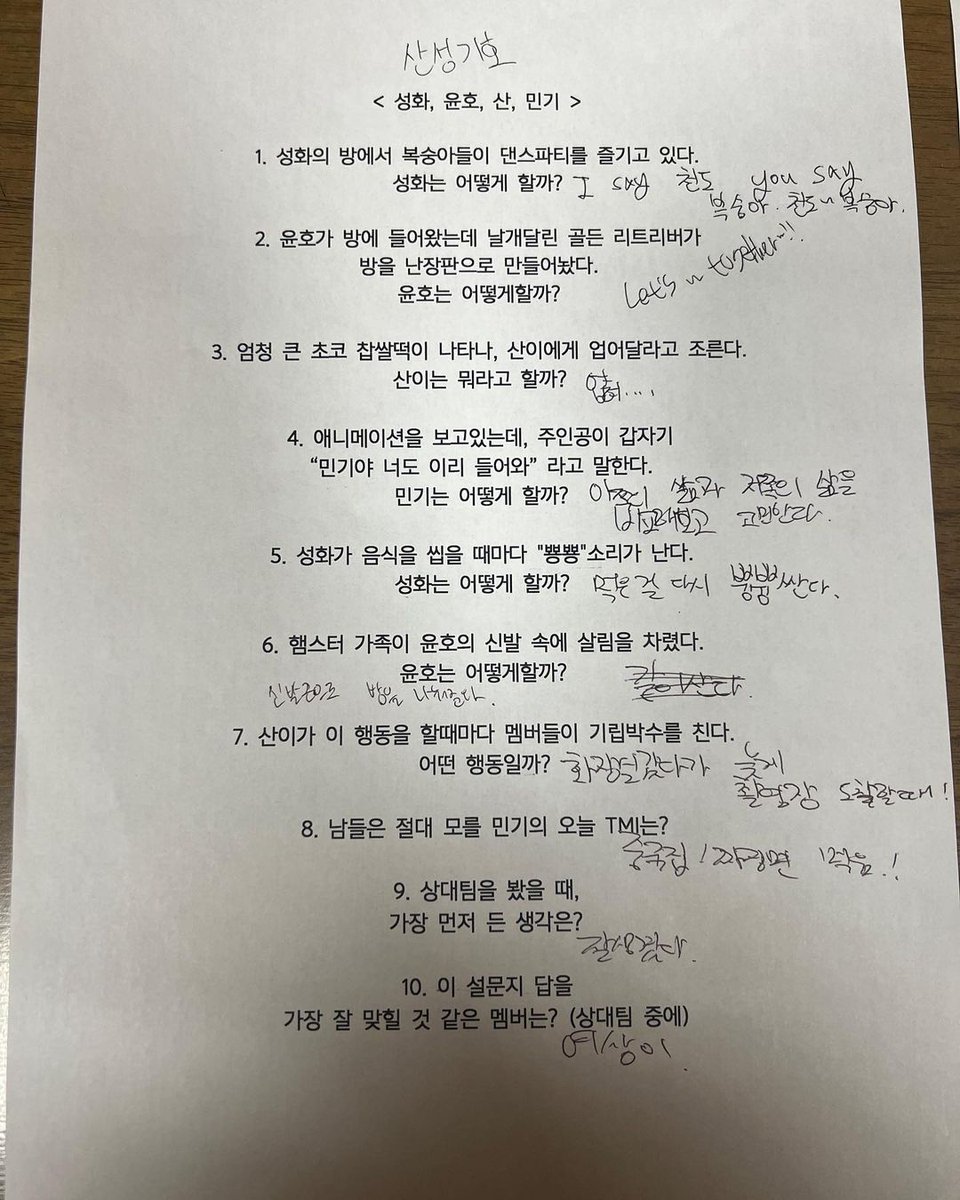 산성기호
< 성화, 윤호, 산, 민기 >
1. 성화의 방에서 복숭아들이 댄스파티를 즐기고 있다.
성화는 어떻게 할까? I say 천도 you say
복숭아. 천도~ 복숭아.
2. 윤호가 방에 들어왔는데 날개달린 골든 리트리버가
방을 난장판으로 만들어놨다.
윤호는 어떻게할까? Let's ~ together~!!
3. 엄청 큰 초코 찹쌀떡이 나타나, 산이에게 업어달라고 조른다.
산이는 뭐라고 할까? 업혀....
4. 애니메이션을 보고있는데, 주인공이 갑자기
“민기야 너도 이리 들어와” 라고 말한다.
민기는 어떻게 할까? 이쪽의 삶과 저쪽의 삶을
비교해보고 고민한다.
5. 성화가 음식을 씹을 때마다 "뿅뿅"소리가 난다.
성화는 어떻게 할까? 먹은걸 다시 뿅뿅싼다.
6. 햄스터 가족이 윤호의 신발 속에 살림을 차렸다.
윤호는 어떻게할까?
신발끈으로 방을 나눠준다.
7. 산이가 이 행동을 할때마다 멤버들이 기립박수를 친다.
어떤 행동일까? 화장실갔다가 늦게
촬영장 도착할때!
8. 남들은 절대 모를 민기의 오늘 TMI는?
중국집! 짜장면 먹음!
9. 상대팀을 봤을 때,
가장 먼저 든 생각은?
잘생겼다.
10. 이 설문지 답을
가장 잘 맞힐 것 같은 멤버는? (상대팀 중에)
여상이.